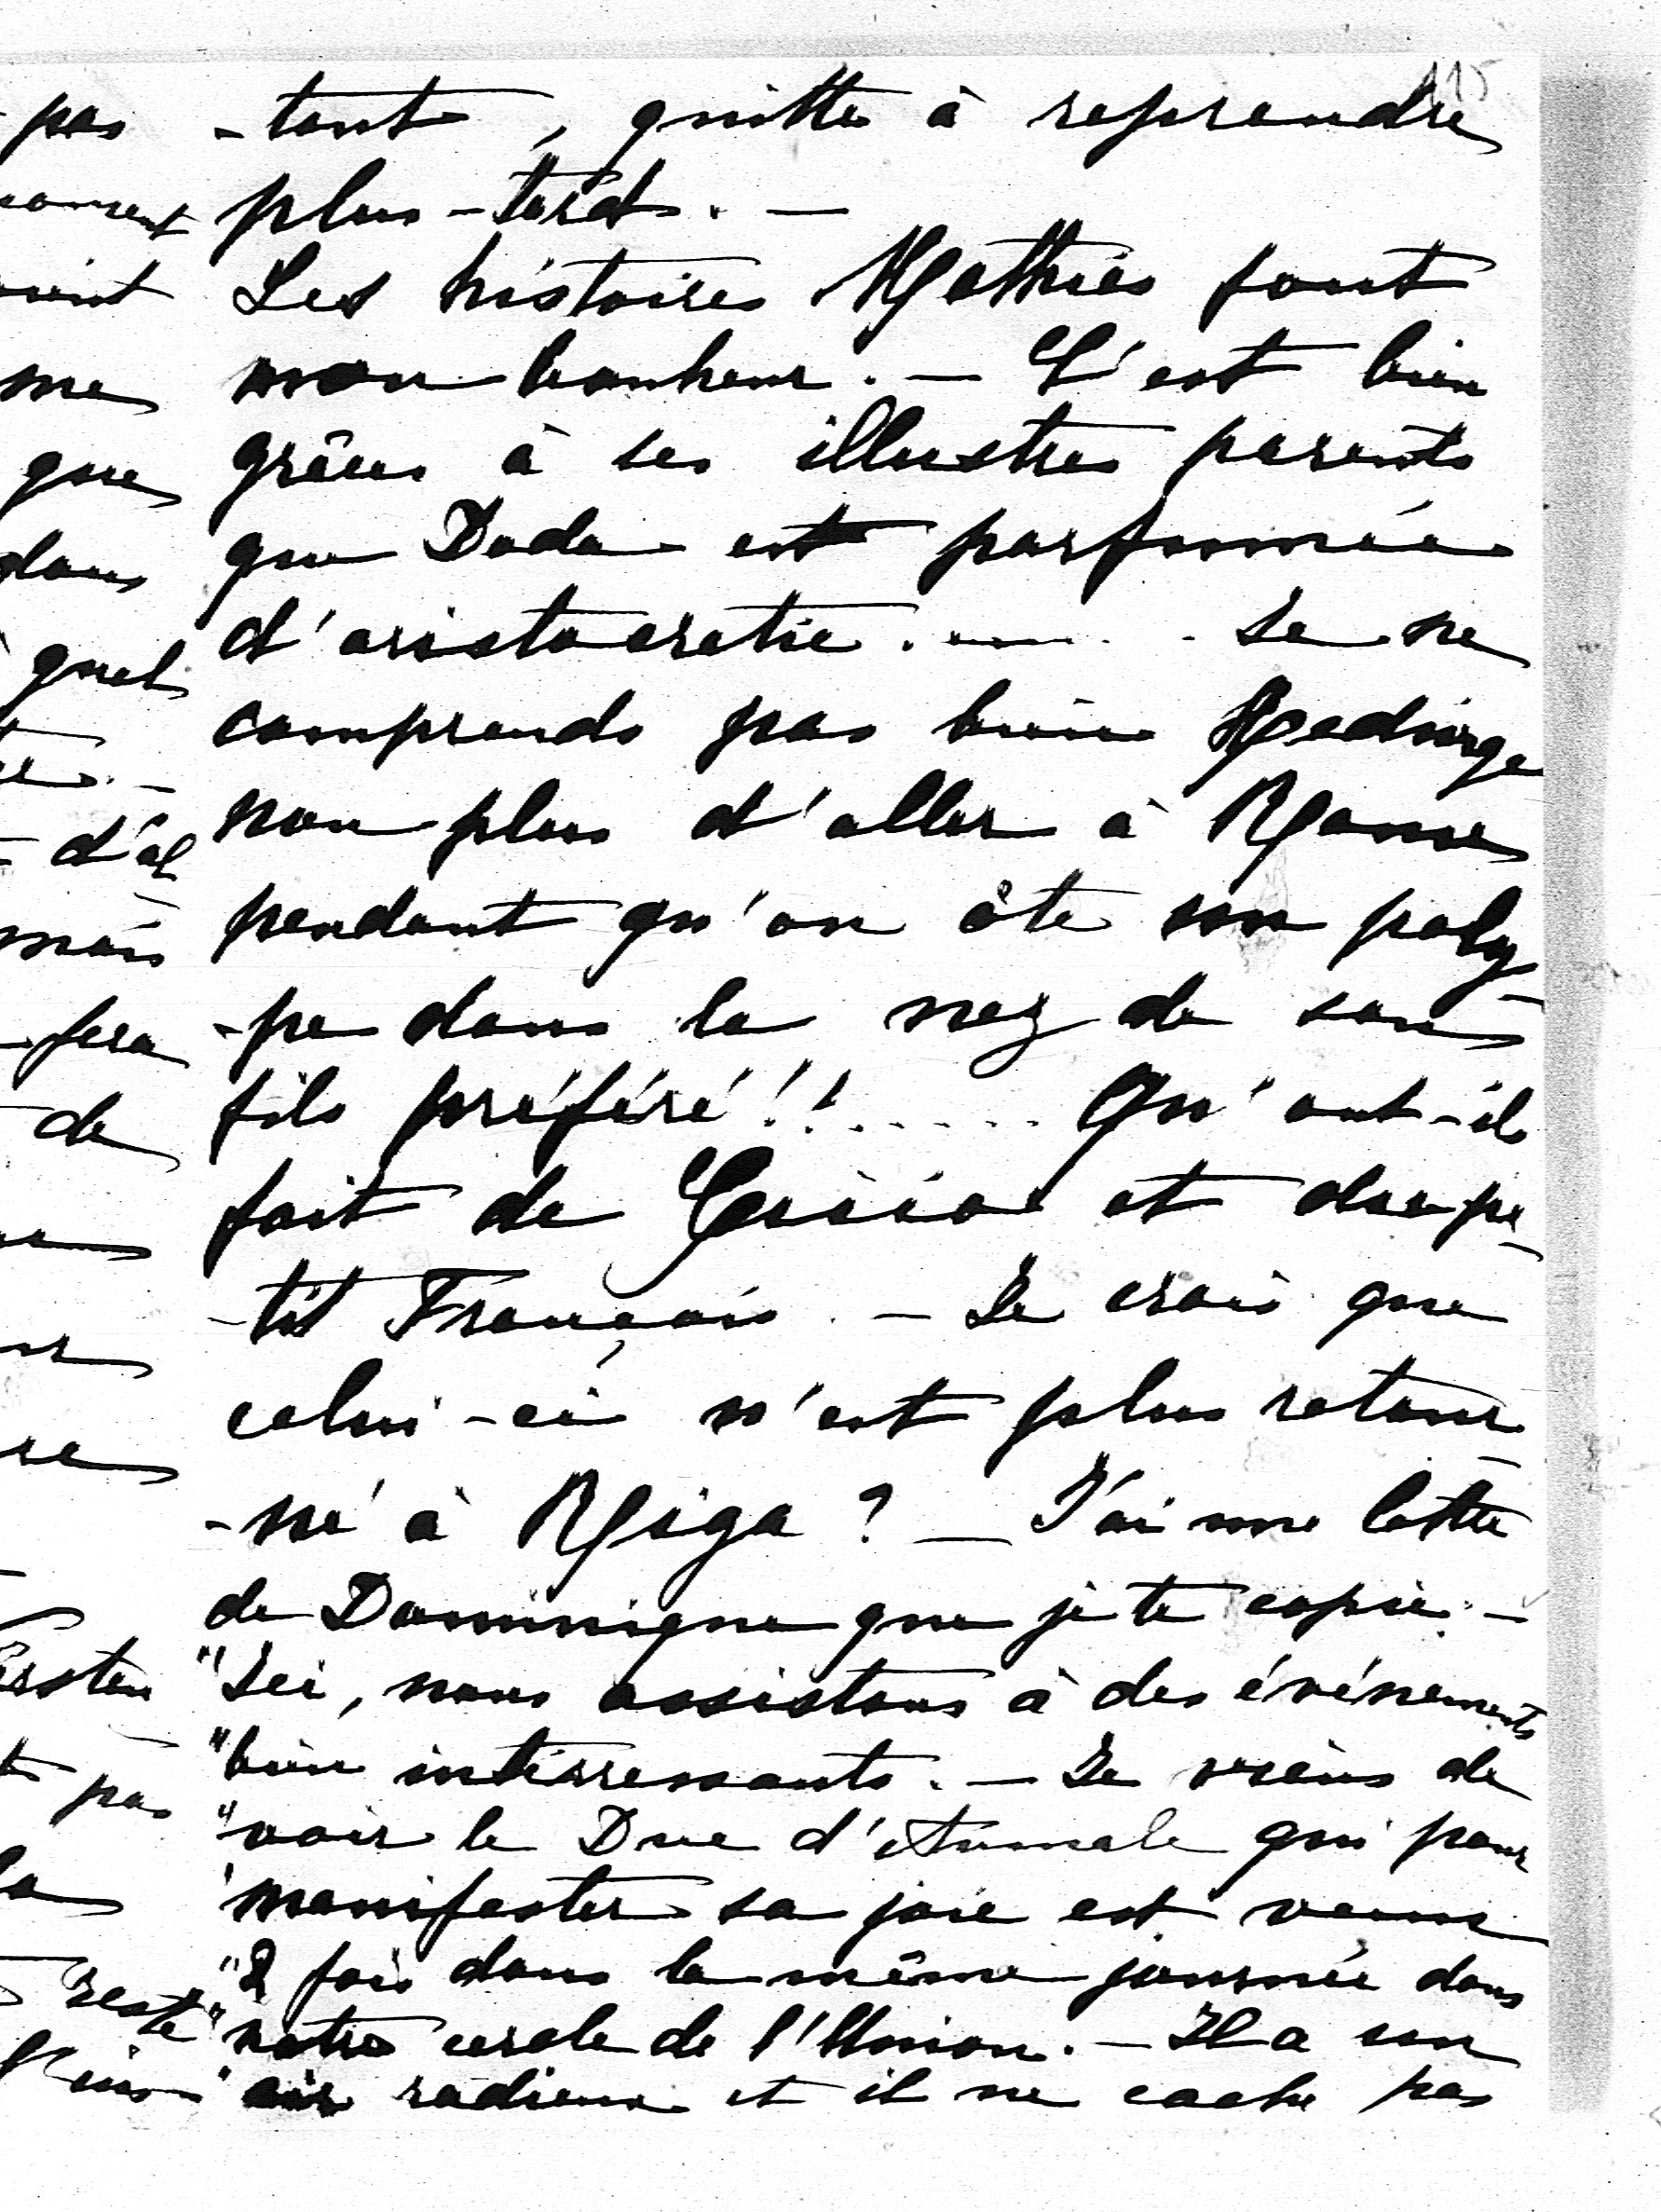 115
-tant, quitte à reprendre
plus-tard. —
Les histoires Mathieu font
mon bonheur. — C'est bien
grâce à ses illustres parents
que Dada est parfumée
d'aristocratie. .... Je ne
comprends pas bien Hedwige
non plus d'aller à Rome
pendant qu'on ôte un poly-
-pe dans le nez de son
fils préféré!!...... Qu'ont-ils
fait de et du pe-
-tit Français. — Je crois que
celui-ci n'est plus retour-
-né à Riga? — J'ai une lettre
de Dominique que je te copie. —
"Ici, nous assistons à des événements
"bien intéressants. — Je viens de
"voir le Duc d'Aumale qui pour
"manifester sa joie est venu
"2 fois dans la même journée dans
"notre cercle de l'Union. — Il a un
"air radieux et il ne cache pas
pas
me
que
dans
quel
d'al
mais
fera
de
pas
la
reste